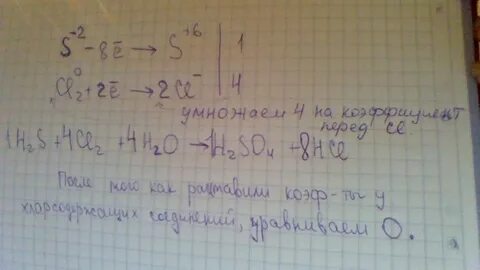 S⁻² - 8ē → S⁺⁶ | 1
Cl₂⁰ + 2ē → 2Cl⁻ | 4
умножаем 4 на коэффициент
перед Cl
1H₂S + 4Cl₂ + 4H₂O → 1H₂SO₄ + 8HCl
После того как раставили коэф-ты у
хлорсодержащих соединений, уравниваем O.